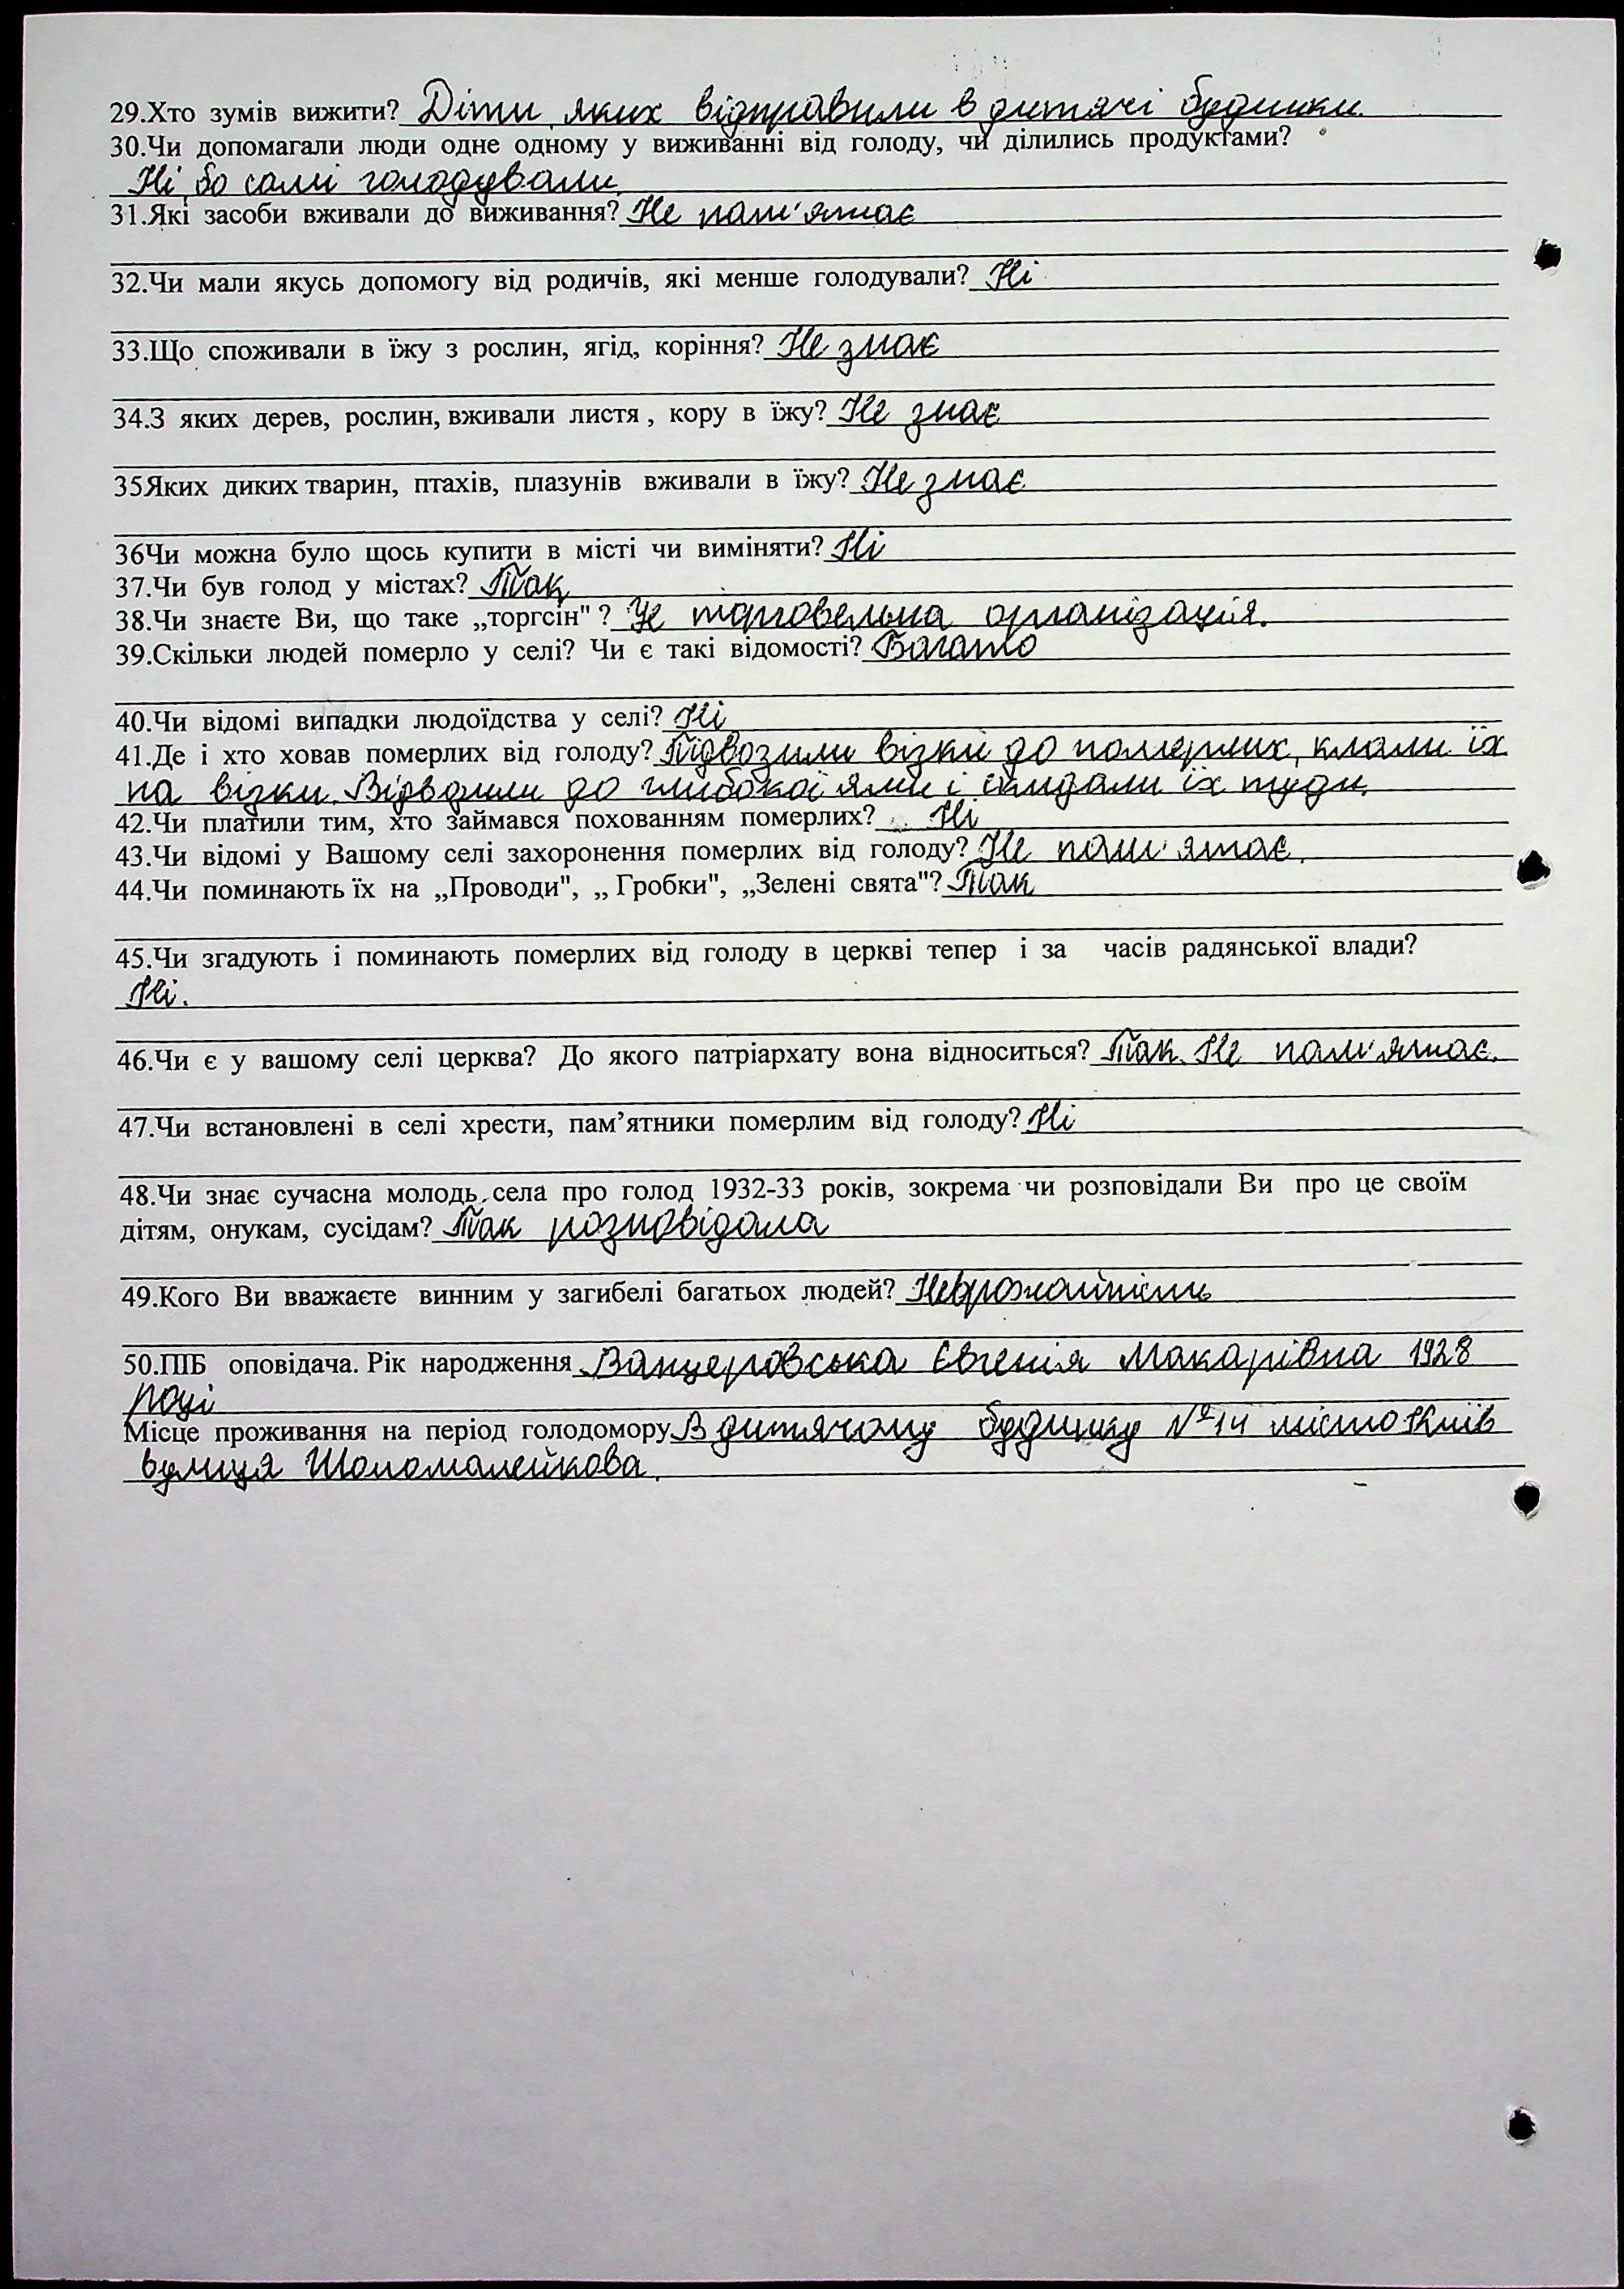 29.Хто зумів вижити? Діти, яких відправили в дитячі будинки.
30.Чи допомагали люди одне одному у виживанні від голоду, чи ділились продуктами?
Ні, бо самі голодували.
31.Які засоби вживали до виживання? Не пам'ятає
32.Чи мали якусь допомогу від родичів, які менше голодували? Ні
33.Що споживали в їжу з рослин, ягід, коріння? Не знає
34.З яких дерев, рослин, вживали листя , кору в їжу? Не знає
35Яких диких тварин, птахів, плазунів вживали в їжу? Не знає
36Чи можна було щось купити в місті чи виміняти? Ні
37.Чи був голод у містах? Так
38.Чи знаєте Ви, що таке „торгсін" ? Це торговельна організація.
39.Скільки людей померло у селі? Чи є такі відомості? Багато
40.Чи відомі випадки людоїдства у селі? Ні
41.Де і хто ховав померлих від голоду? Підвозили візки до померлих, клали їх
на візки. Відвозили до глибокої ями і скидали їх туди.
42.Чи платили тим, хто займався похованням померлих? Ні
43.Чи відомі у Вашому селі захоронення померлих від голоду? Не пам'ятає.
44.Чи поминають їх на „Проводи", „ Гробки", „Зелені свята"? Так
45.Чи згадують і поминають померлих від голоду в церкві тепер і за часів радянської влади?
Ні.
46.Чи є у вашому селі церква? До якого патріархату вона відноситься? Так. Не пам'ятає.
47.Чи встановлені в селі хрести, пам’ятники померлим від голоду? Ні
48.Чи знає сучасна молодь села про голод 1932-33 років, зокрема чи розповідали Ви про це своїм
дітям, онукам, сусідам? Так розповідала
49.Кого Ви вважаєте винним у загибелі багатьох людей? Неврожайність
50.ПІБ оповідача. Рік народження Ванцеровська Євгенія Макарівна 1928
році
Місце проживання на період голодомору В дитячому будинку №14 місто Київ
вулиця